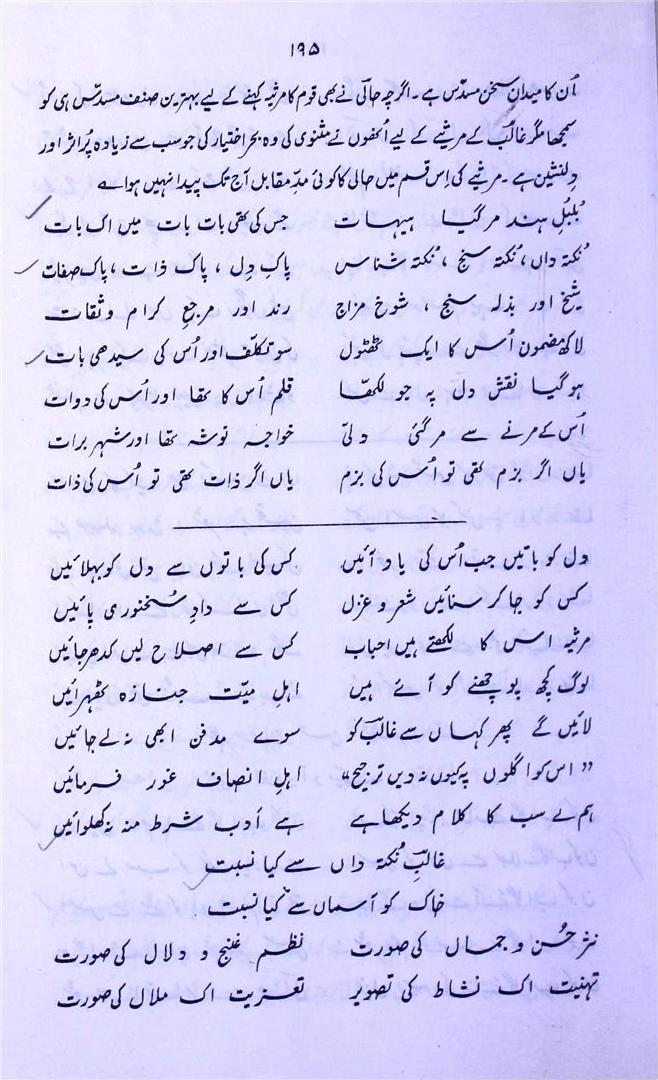 ۱۹۵
اُن کا میدانِ سخن مسدّس ہے۔ اگرچہ حالیؔ نے بھی قوم کا مرثیہ کہنے کے لیے بہترین صنف مسدّس ہی کو
سمجھا مگر غالبؔ کے مرثیے کے لیے اُنھوں نے مثنوی کی وہ بحر اختیار کی جو سب سے زیادہ پُر اثر اور
دلنشین ہے۔ مرثیے کی اِس قسم میں حالی کا کوئی مدِّ مقابل آج تک پیدا نہیں ہوا ؎
بلبلِ ہند مر گیا ہیہات جس کی تھی بات بات میں اک بات
نُکتہ داں، نُکتہ سنج، نُکتہ شناس پاک دِل، پاک ذات، پاک صفات
شیخ اور بذلہ سنج، شوخ مزاج رند اور مرجعِ کرام و ثقات
لاکھ مضمون اُس کا ایک ٹھٹول سو تکلّف اور اُس کی سیدھی بات
ہو گیا نقش دل پہ جو لکھّا قلم اُس کا تھا اور اُس کی دوات
اُس کے مرنے سے مر گئی دلّی خواجہ نوشہ تھا اور شہر برات
یاں اگر بزم تھی تو اُس کی بزم یاں اگر ذات تھی تو اُس کی ذات
دل کو باتیں جب اُس کی یاد آئیں کس کی باتوں سے دل کو بہلائیں
کس کو جا کر سنائیں شعر و غزل کس سے دادِ سُخنوری پائیں
مرثیہ اس کا لکھتے ہیں احباب کس سے اصلاح لیں کدھر جائیں
لوگ کچھ پوچھنے کو آئے ہیں اہلِ میّت جنازہ ٹھہرائیں
لائیں گے پھر کہاں سے غالبؔ کو سوے مدفن ابھی نہ لے جائیں
” اس کو اگلوں پہ کیوں نہ دیں ترجیح“ اہلِ انصاف غور فرمائیں
ہم نے سب کا کلام دیکھا ہے ہے اَدب شرط منہ نہ کھلوائیں
غالبِ نُکتہ داں سے کیا نسبت
خاک کو آسماں سے کیا نسبت
نثر حُسن و جمال کی صورت نظم غنج و دلال کی صورت
تہنیت اک نشاط کی تصویر تعزیت اک ملال کی صورت